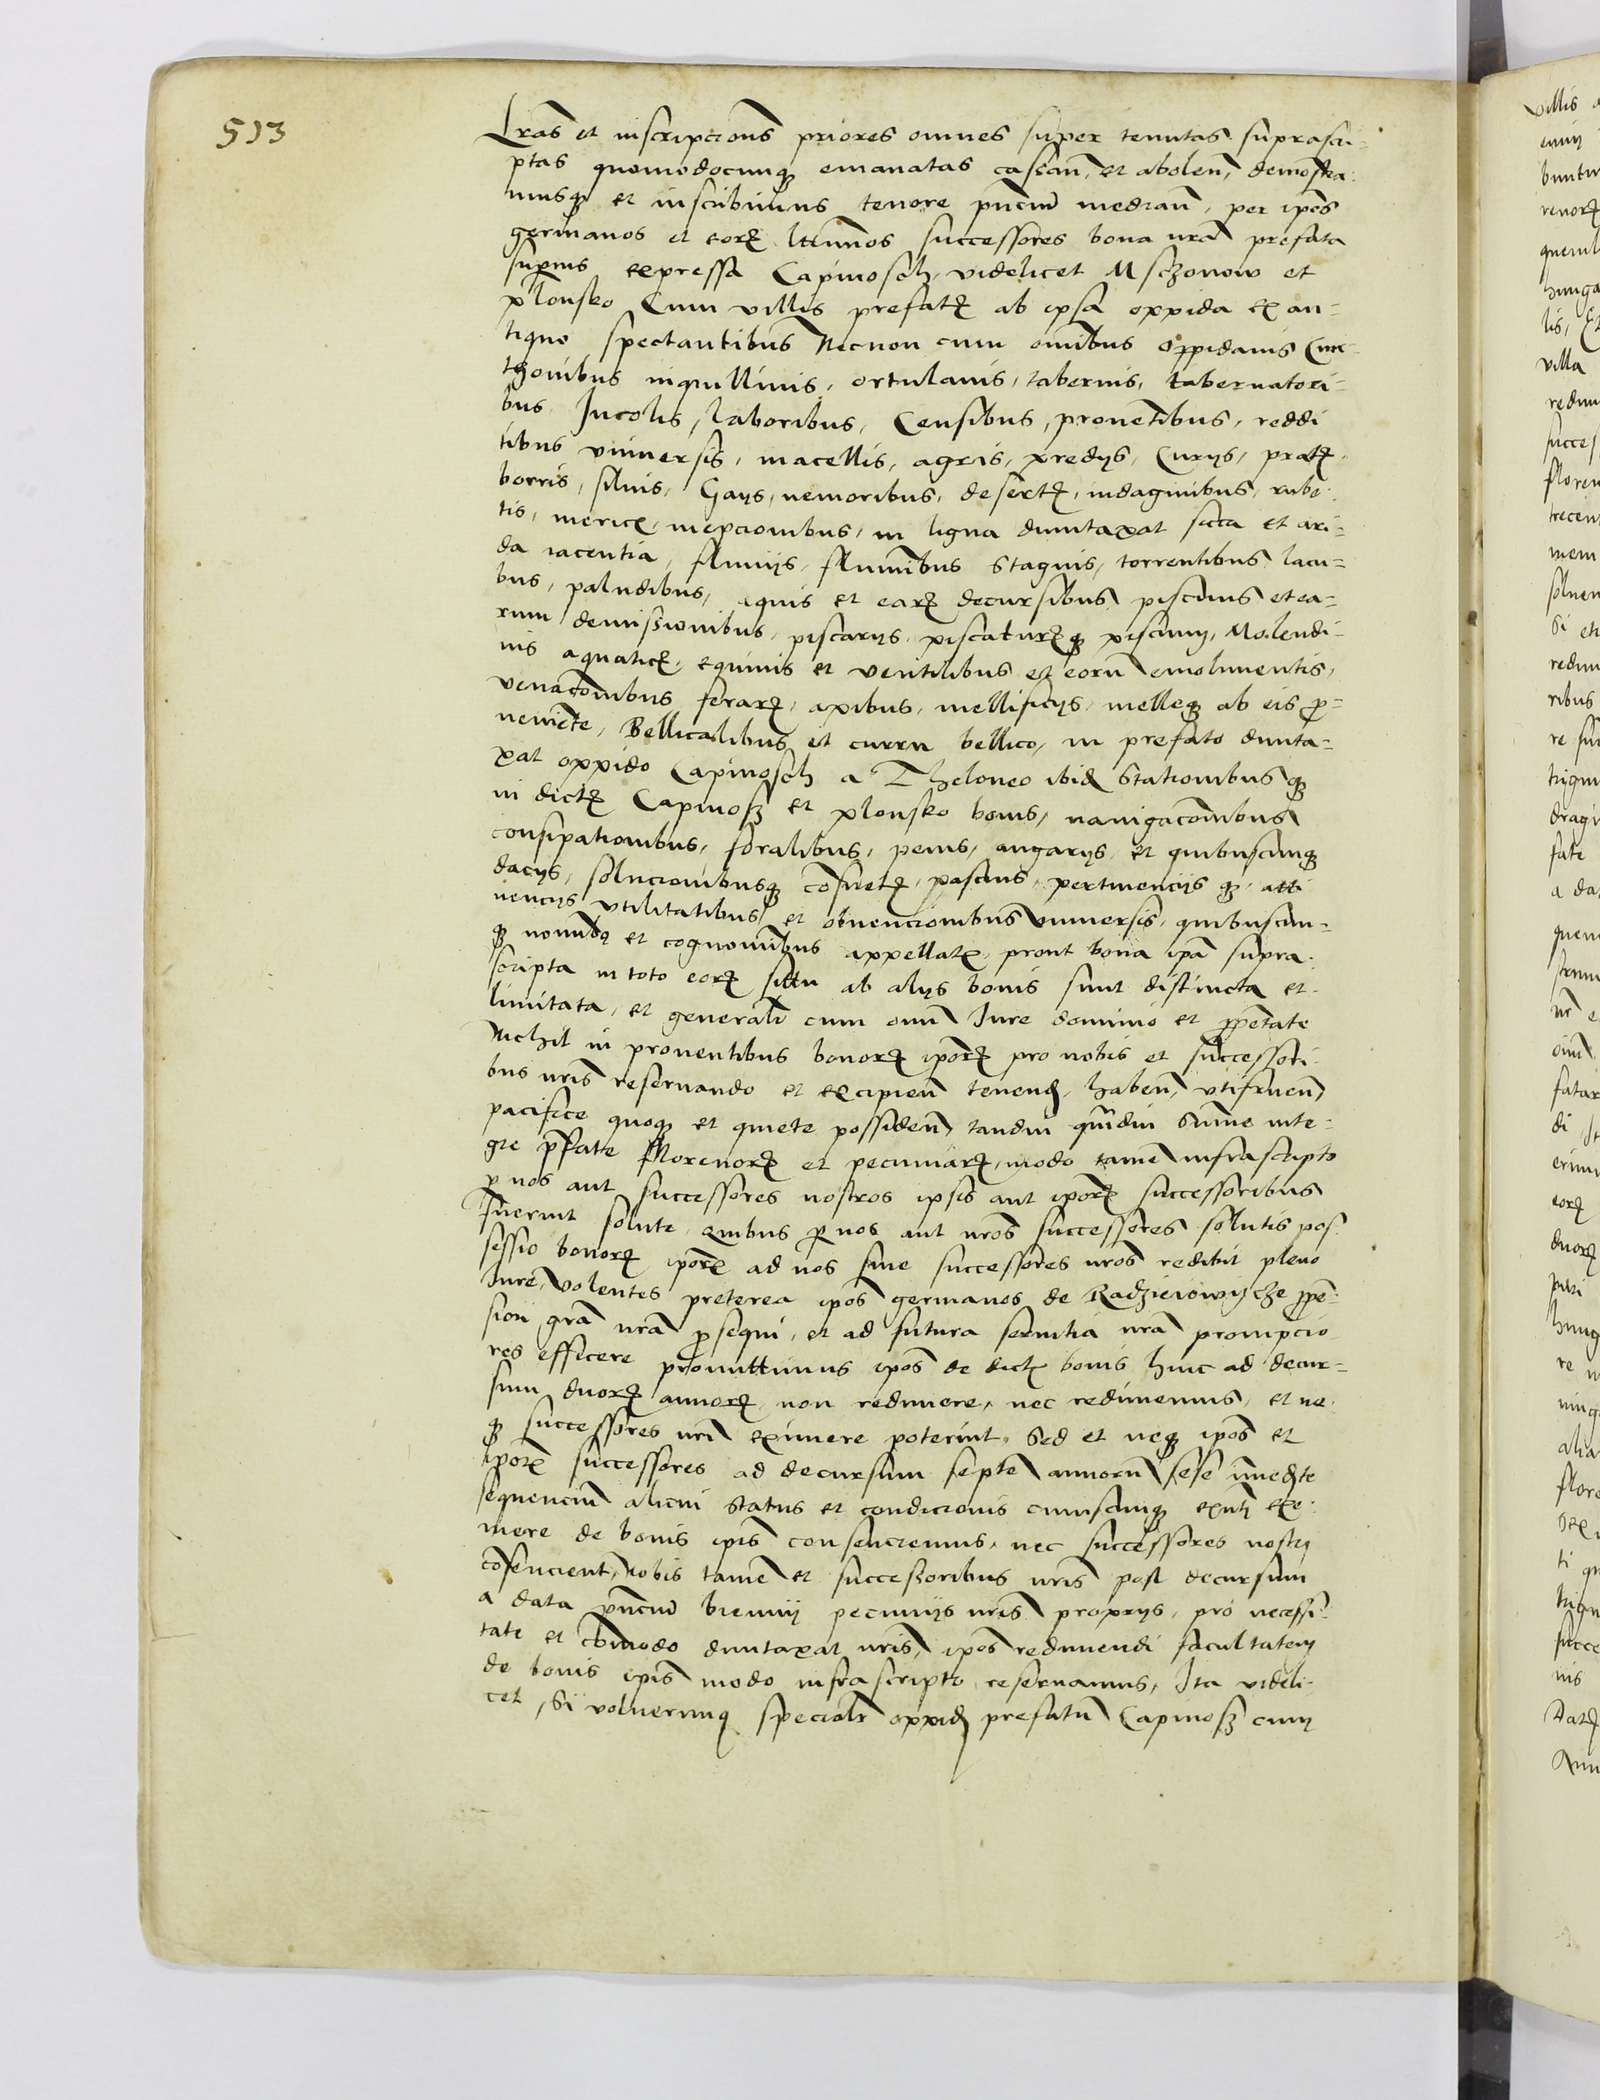 513
Lras et inscripcions priores omnes super tenutas suprascri-
ptas quomodocunq emanatas cassan, et abolen, demonstra-
musq et inscribimus tenore pncium median, per ipos
germanos et eorz lttimos successores bona nra prefata
superius expressa Capinosch, videlicet Msczonow et
plonsko Cum villis prefatz ab ipsa oppida ex an-
tiquo spectantibus Necnon cum omibus oppidanis Cme-
thonibus inquillinis, ortulanis, tabernis, tabernatori-
bus Incolis, laboribus, Censibus, prouetibus, reddi
tibus vniuersis, macellis, agris, predys, Curys, pratz
borris, siluis, Gays, nemoribus, desertz, indaginibus, rube-
tis, mericz, mepcionibus, in ligna dumtaxat sicca et ari-
da iacentia, fluuys, fluminibus Stagnis, torrentibus lacu-
bus, paludibus, aquis et earz decursibus piscinis et ea-
rum demissionibus, piscarys piscaturzq piscium, Molendi-
nis aquaticz, equinis et ventilibus et eorum emolumentis,
venacombus ferarz, apibus, mellificys, melleq ab eis p-
neniete, Bellicalibus et curru bellico, in prefato dunta-
xat oppido Capinosch a Theloneo ibid Stationibusq
in dictz Capinosz et plonsko bonis, nauigacombus
consipationibus, foralibus, penis, angarys, et quibuscunq
dacys, solucionibusq cosuetz, pascuis, pertinencysq, atti
nencys vtilitatibus et obuencionibus vniuersis, quibuscun-
q nomibq et cognominibus appellatz, prout bona ipa supra-
scripta in toto eorz sittu ab alys bonis sunt distincta et
limitata, et generalr cum omi Iure dominio et ppetate
Nichil in prouentibus bonorz iporz pro nobis et successori-
bus nris reseruando et excipien tenend, haben, vtifruen
pacifice quoq et quiete possiden, tandiu qmdiu Sume inte-
gre pfate florenorz et pecuniarz, modo tame infrascripto
p nos aut successores nostros ipsis aut iporz successoribus
fuerint solute, quibus p nos aut nros successores solutis pos-
sessio bonorz iporz ad nos siue successores nros redibit pleno
Iure, volentes preterea ipos germanos de Radzieiowijcze ppe-
sion gra nra psequi, et ad futura seruitia nra prompcio
res efficere promittimus ipos de dictz bonis hinc ad decur-
sum duorz annorz non redimere, nec redimemus, et ne-
q successores nri eximere poterint, Sed et neq ipos et
iporz successores ad decursum septe annorum sese imediate
sequencium alicui status et condicionis cuiuscunq exnti exi-
mere de bonis ipis consenciemus, nec successores nostri
cosencient, nobis tame et successoribus nris post decursum
a data pncium bienny pecunys nris proprys, pro necessi-
tate et comodo duntaxat nris, ipos redimendi facultatem
de bonis ipis modo infrascripto reseruamus, Ita videli-
cet, Si voluerimq specialr oppid prefatu Capinosz cum